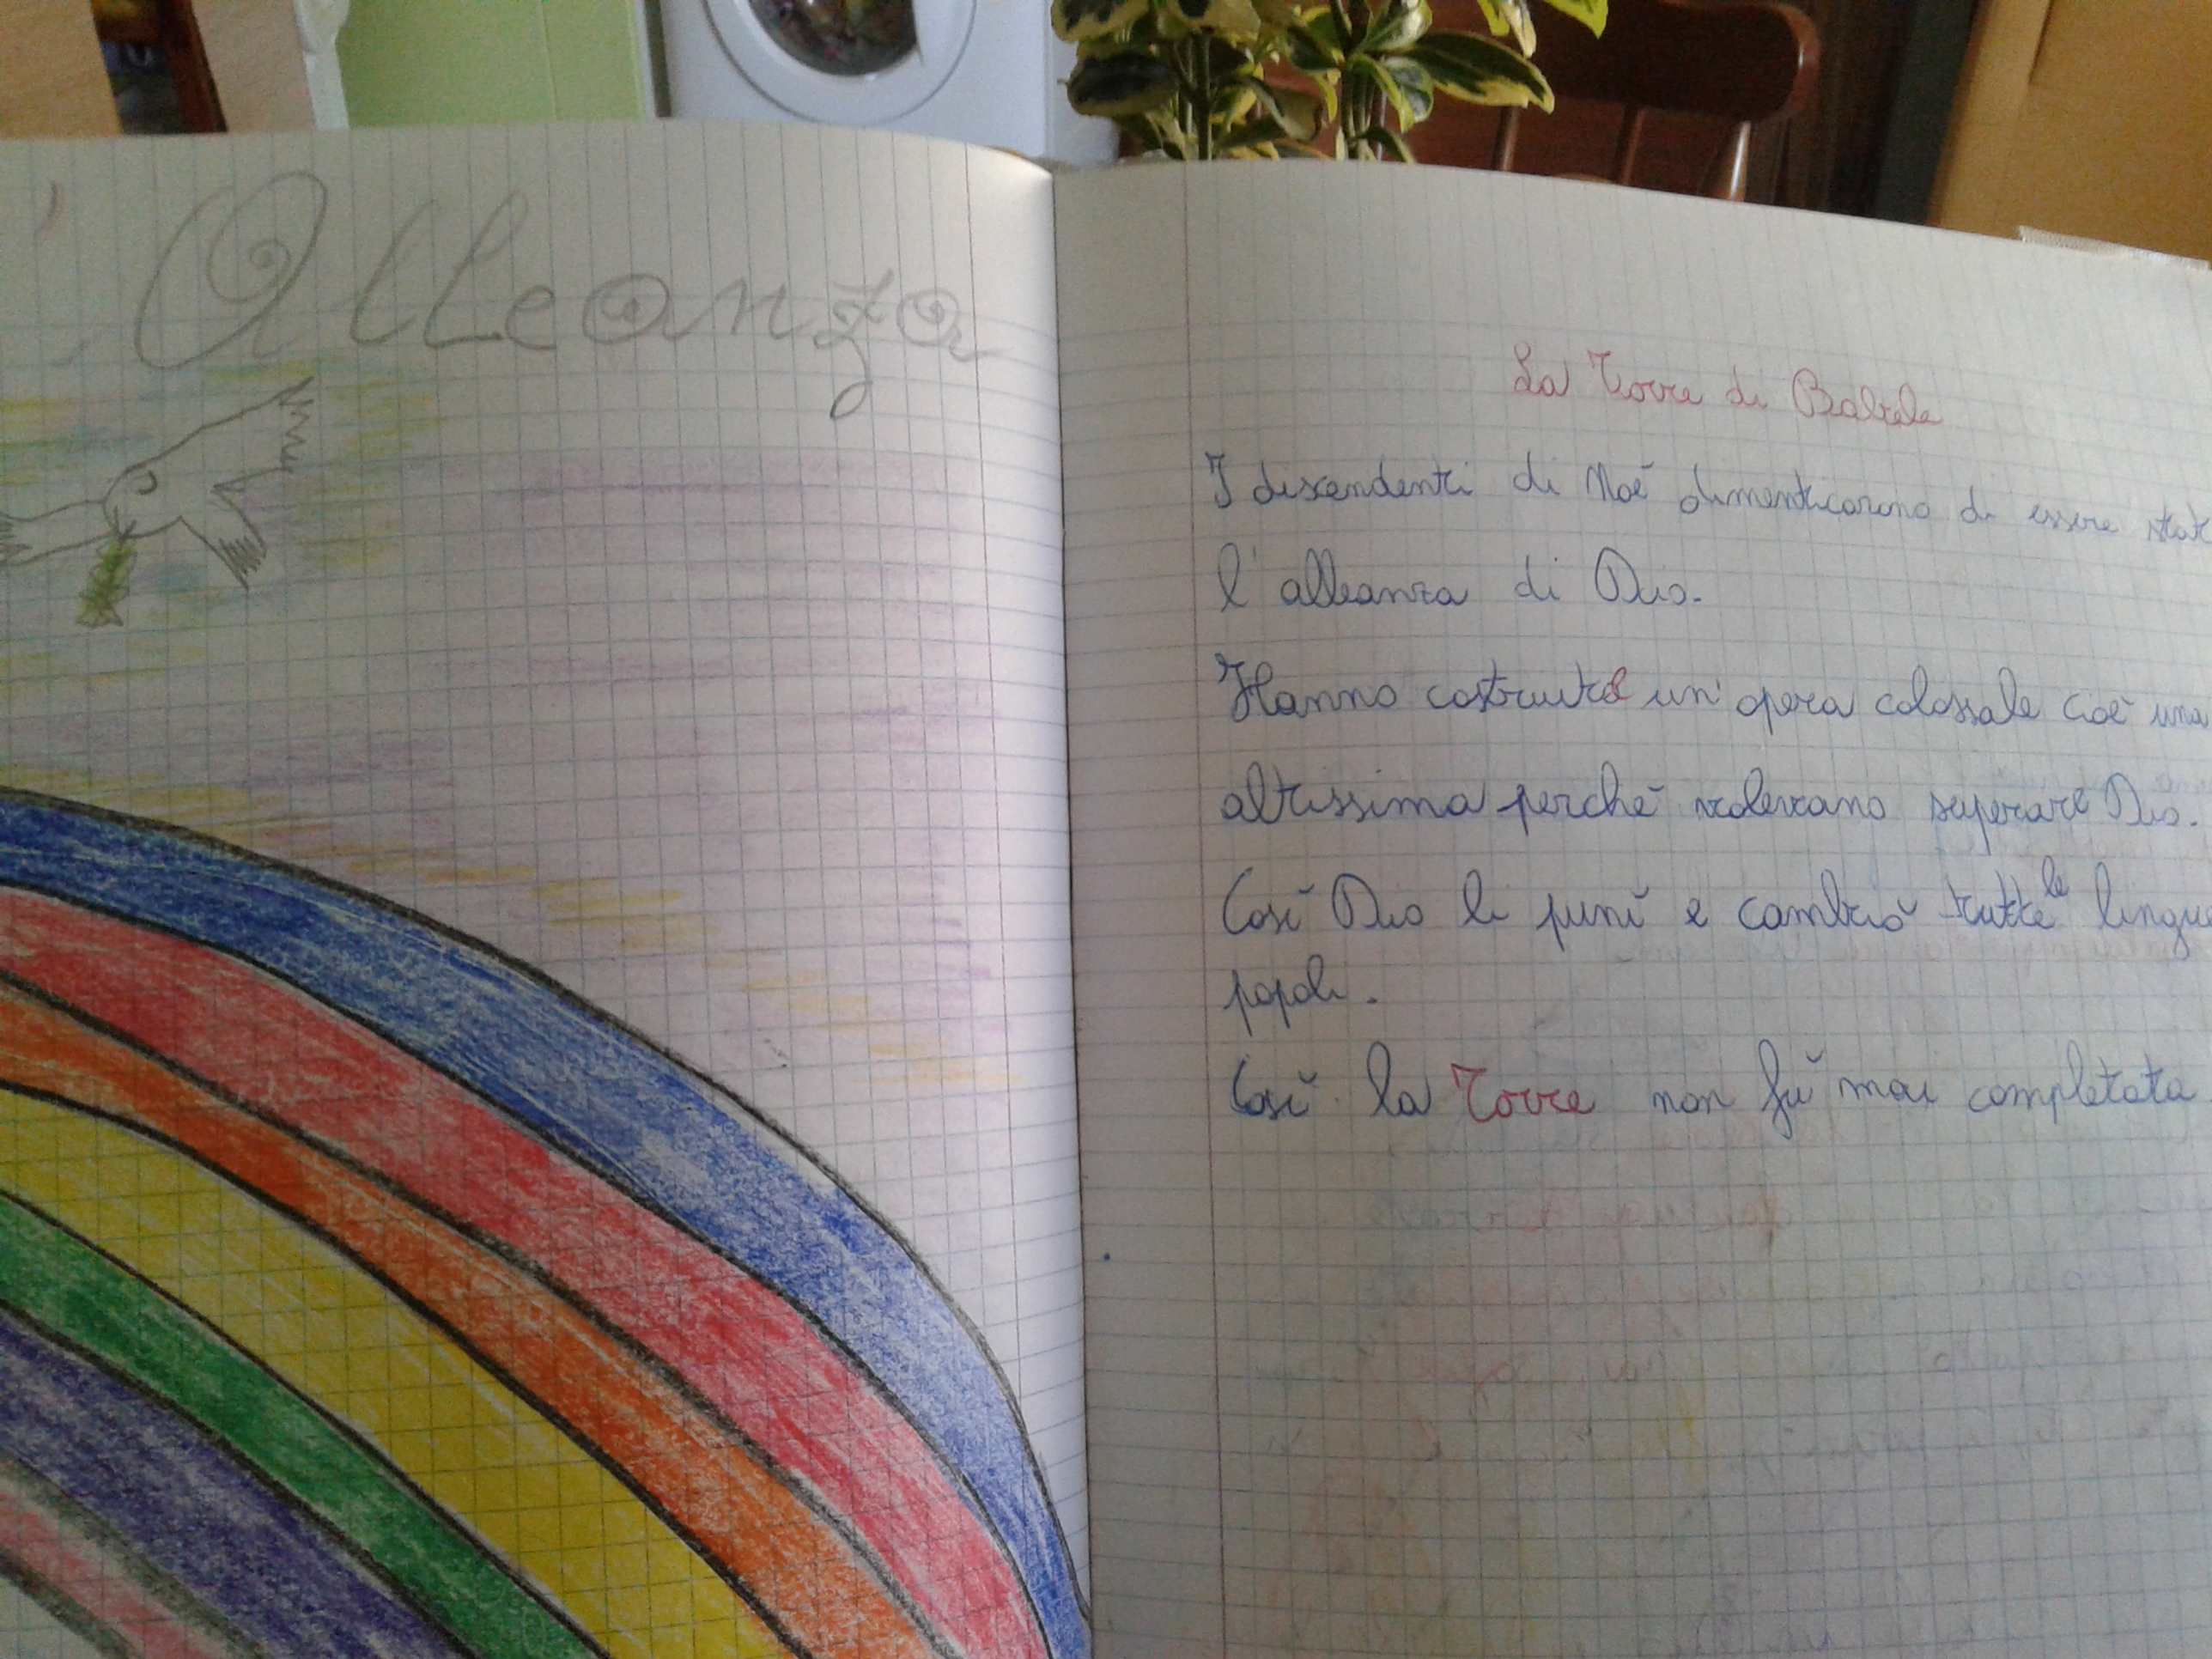 L'Alleanza
La Torre di Babele
I discendenti di Noè dimenticarono di essere stat
l'alleanza di Dio.
Hanno costruito un'opera colossale cioè una
altissima perchè volevano superare Dio.
Così Dio li punì e cambiò tutte le lingue
popoli.
Così la Torre non fù mai completata